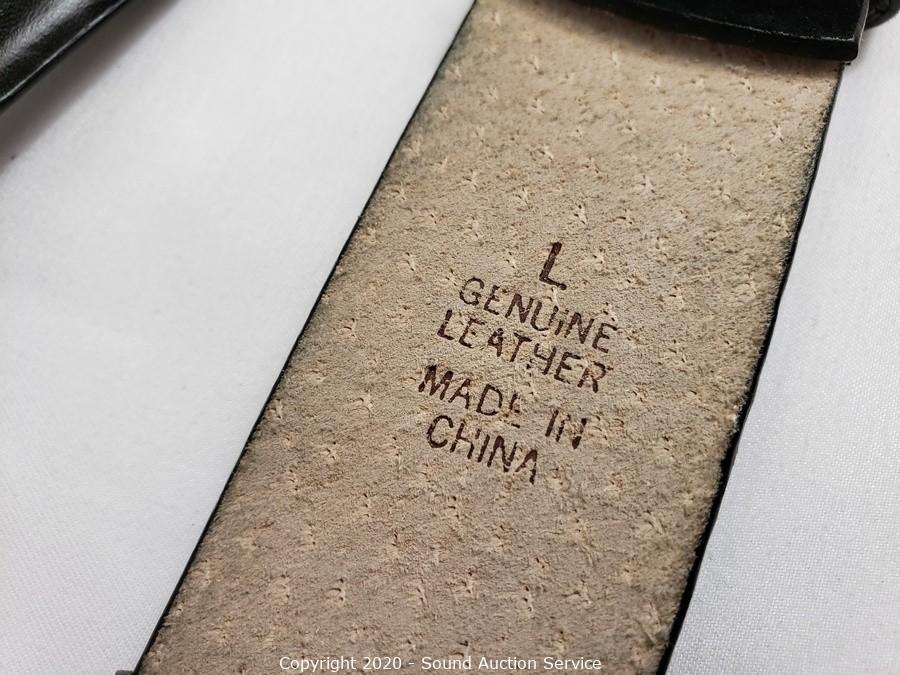 L
GENUINE
LEATHER
MADE IN
CHINA
Copyright 2020 - Sound Auction Service